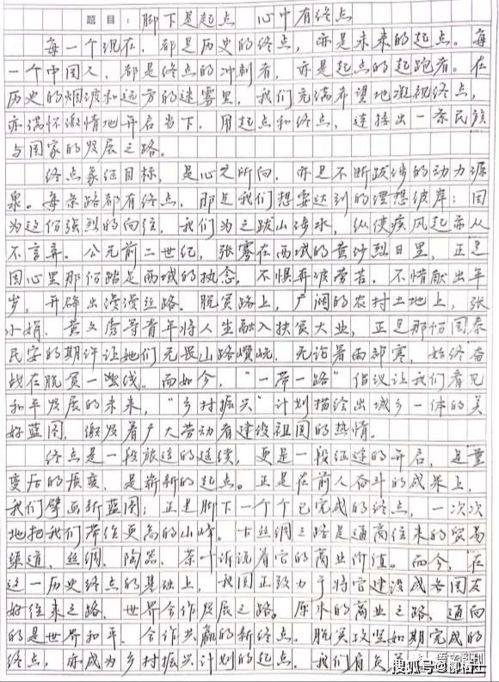 题目：脚下是起点，心中有终点
每一个现在，都是历史的终点，亦是未来的起点。每
一个中国人，都是终点的冲刺者，亦是起点的起跑者。在
历史的烟波和远方的迷雾里，我们充满希望地凝视终点，
亦满怀激情地开启当下，用起点和终点，连接出一条民族
与国家的发展之路。
终点象征目标，是心之所向，亦是不断跋涉的动力源
泉。每条路都有终点，那是我们想要达到的理想彼岸；因
为这份强烈的向往，我们为之跋山涉水，纵使疾风起亦从
不言弃。公元前二世纪，张骞在西域的黄沙烈日里，正是
因心里那份踏足西域的执念，不惧奔波劳苦，不惜献出年
岁，开辟出漫漫丝路。脱贫路上，广阔的农村土地上，张
小娟、黄文秀等青年将人生融入扶贫大业，正是那份国泰
民安的期许让她们无畏山路崎岖，无论暑雨祁寒，始终奋
战在脱贫一线。而如今，“一带一路”倡议让我们看见
和平发展的未来，“乡村振兴”计划描绘出城乡一体的美
好蓝图，激发着广大劳动者建设祖国的热情。
终点是一段旅途的延续，更是一段征途的开启，是量
变后的质变，是崭新的起点。正是在前人奋斗的成果上，
我们擘画新蓝图；正是脚下一个个已完成的终点，一次次
地把我们带往更高的山峰。古丝绸之路是通商往来的贸易
渠道，丝绸、陶器、茶叶诉说着它的商业价值。而今，在
这一历史终点的基础上，我国正致力于将它建设成各国友
好往来之路，世界合作发展之路。原来的商业之路，通向
的是世界和平、合作共赢的新终点。脱贫攻坚如期完成的
终点，亦成为乡村振兴计划的起点，我们有
搜狐号@